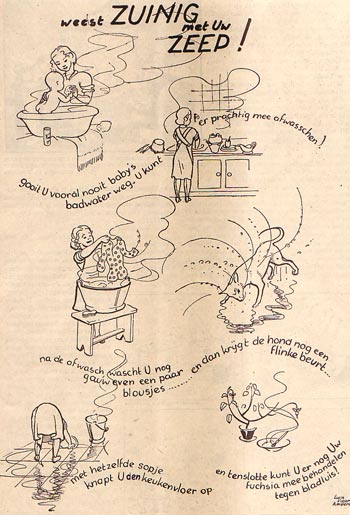 weest ZUINIG
met Uw
ZEEP!
gooit U vooral nooit baby's
badwater weg. U kunt
er prachtig mee afwasschen!
na de afwasch wascht U nog
gauw even een paar
blousjes.......
en dan krijgt de hond nog een
flinke beurt...
met hetzelfde sopje
knapt U den keukenvloer op
en tenslotte kunt U er nog Uw
fuchsia mee behandelen
tegen bladluis!